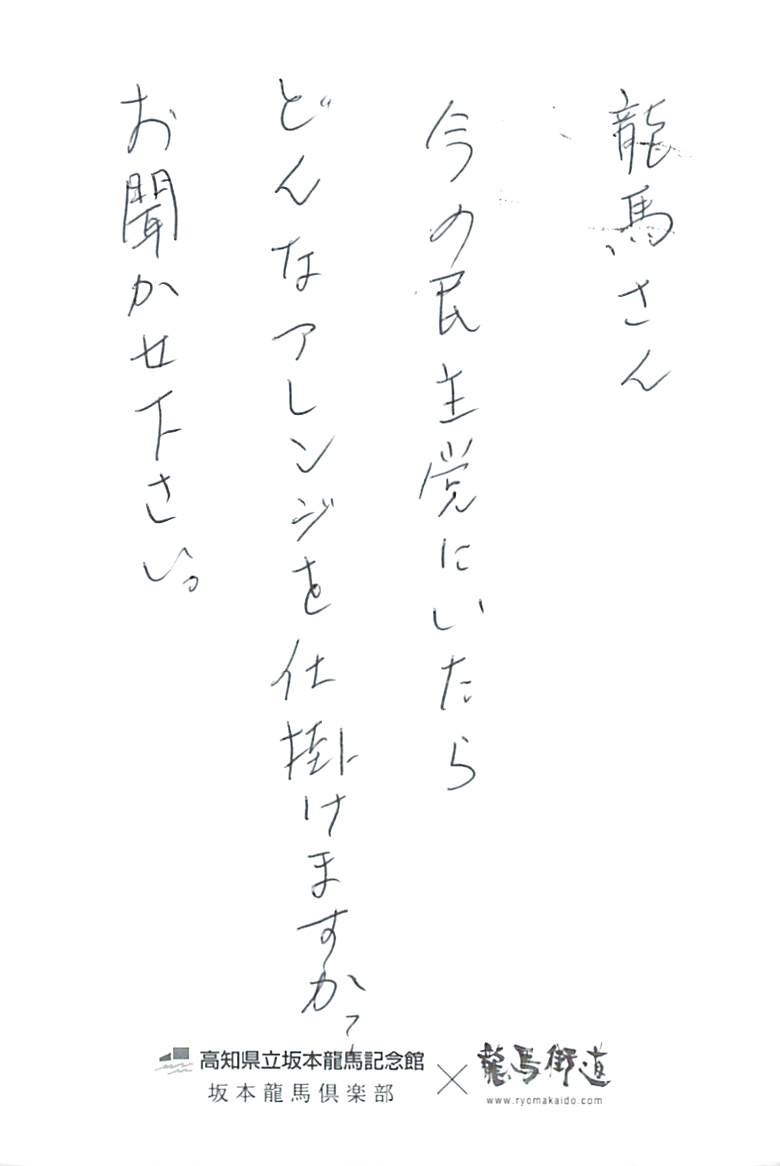 龍馬さん
今の民主党にいたら
どんなアレンジを仕掛けますか?
お聞かせ下さい。
高知県立坂本龍馬記念館
坂本龍馬倶楽部
×
龍馬街道
www.ryomakaido.com